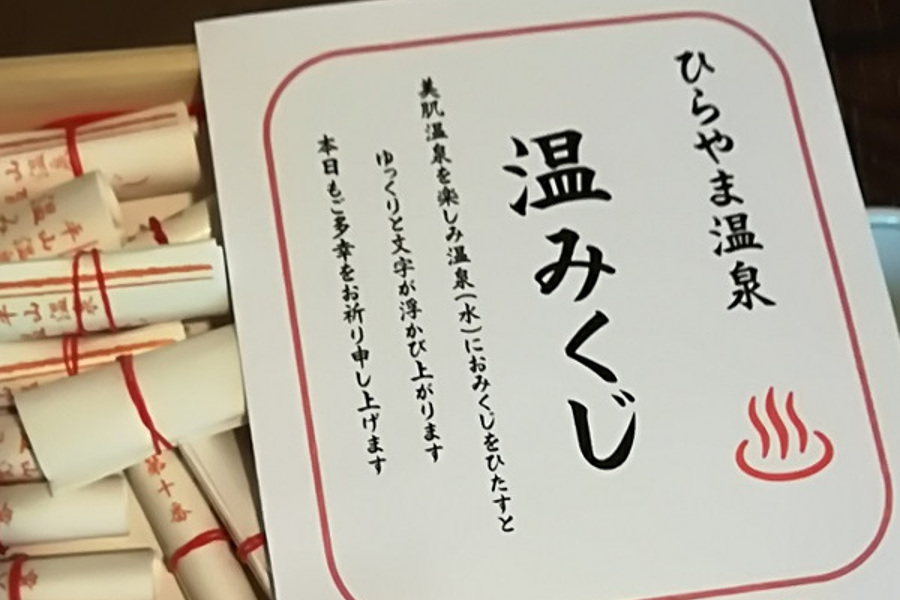 ひらやま温泉
温みくじ
美肌温泉を楽しみ温泉(水)におみくじをひたすと
ゆっくりと文字が浮かび上がります
本日もご多幸をお祈り申し上げます
平山温泉
第十番